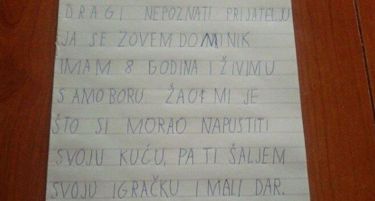 DRAGI NEPOZNATI PRIJATELJU
JA SE ZOVEM DOMINIK
IMAM 8 GODINA I ŽIVIM U
SAMOBORU. ŽAO MI JE
ŠTO SI MORAO NAPUSTITI
SVOJU KUĆU, PA TI ŠALJEM
SVOJU IGRAČKU I MALI DAR.